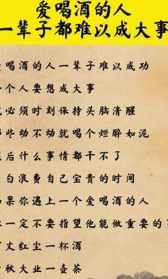 爱喝酒的人
一辈子都难以成大事
爱喝酒的人一辈子难以成功
一个人要想成大事
必须时刻保持头脑清醒
些动不动就喝个烂醉如泥
后什么事情都干不了
白浪费自己宝贵的时间
果你遇上一个爱喝酒的人
一定不要指望他能做重要的
丈红尘一杯酒
秋大业一壶茶